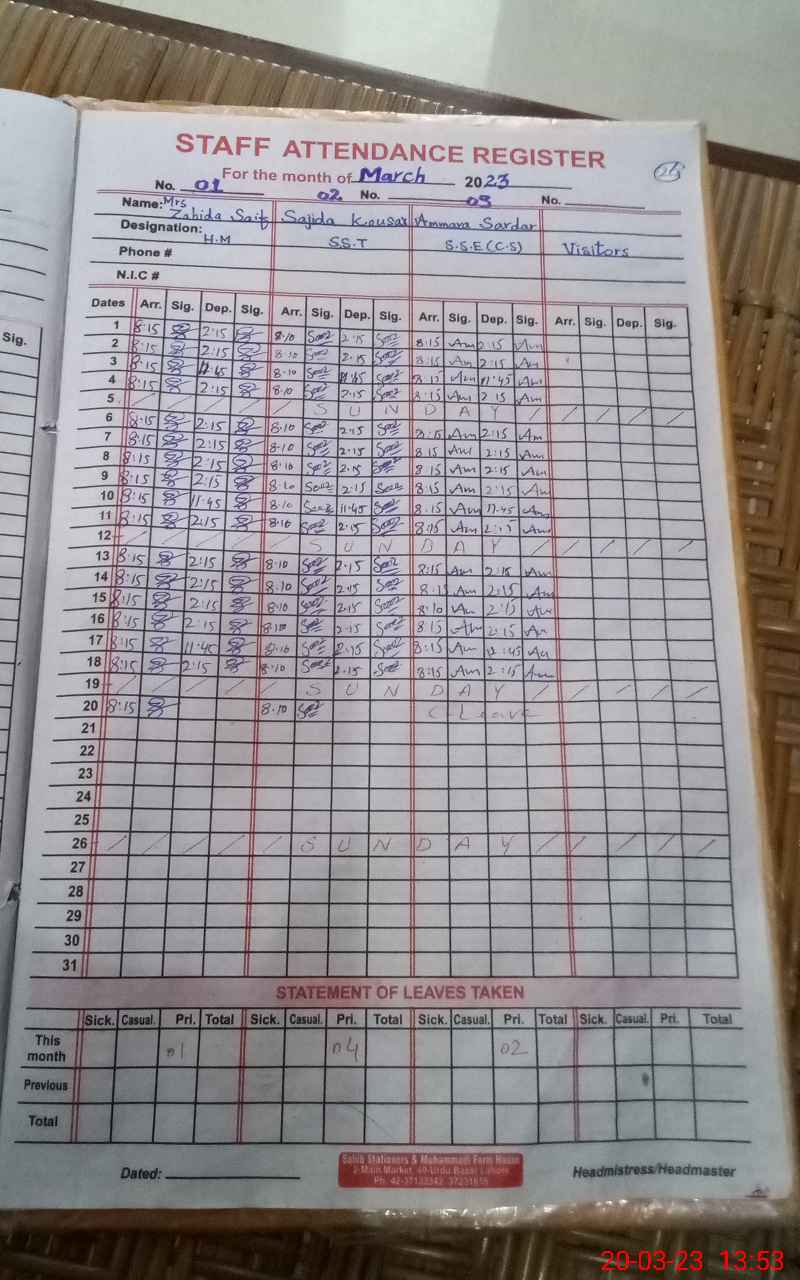 STAFF ATTENDANCE REGISTER
For the month of March 2023
No. 01 02 No. 03 No.
Name: Mrs Zahida Saif Sajida Kousar Ammara Sardar
Designation: H.M S.S.T S.S.E (C.S) Visitors
Phone #
N.I.C #
Sig.
Dates Arr. Sig. Dep. Sig. Arr. Sig. Dep. Sig. Arr. Sig. Dep. Sig. Arr. Sig. Dep. Sig.
1 8:15 2:15 8:10 2:15 8:15 Am 2:15 Am
2 8:15 2:15 8:10 2:15 8:15 Am 2:15 Am
3 8:15 8:10 8:15 Am 11:45 Am
4 8:15 2:15 8:10 2:15 8:15 Am 2:15 Am
5 S U N D A Y
6 8:15 2:15 8:10 2:15 8:15 Am 2:15 Am
7 8:15 2:15 8:10 2:15 8:15 Am 2:15 Am
8 8:15 2:15 8:10 2:15 8:15 Am 2:15 Am
9 8:15 2:15 8:10 2:15 8:15 Am 2:15 Am
10 8:15 11:45 8:10 11:45 8:15 Am 11:45 Am
11 8:15 2:15 8:10 2:15 8:15 Am 2:15 Am
12 S U N D A Y
13 8:15 2:15 8:10 2:15 8:15 Am 2:15 Am
14 8:15 2:15 8:10 2:15 8:15 Am 2:15 Am
15 8:15 2:15 8:10 2:15 8:10 Am 2:15 Am
16 8:15 2:15 8:10 2:15 8:15 Am 2:15 Am
17 8:15 11:45 8:10 2:15 8:15 Am 12:45 Am
18 8:15 2:15 8:10 2:15 8:15 Am 2:15 Am
19 S U N D A Y
20 8:15 8:10 C-Leave
21
22
23
24
25
26 S U N D A Y
27
28
29
30
31
STATEMENT OF LEAVES TAKEN
Sick. Casual. Pri. Total Sick. Casual. Pri. Total Sick. Casual. Pri. Total Sick. Casual. Pri. Total
This month 01 04 02
Previous
Total
Dated:
Sahib Stationers & Muhammadi Form House
2-Main Market, 40-Urdu Bazar Lahore
Headmistress/Headmaster
20-03-23 13:53